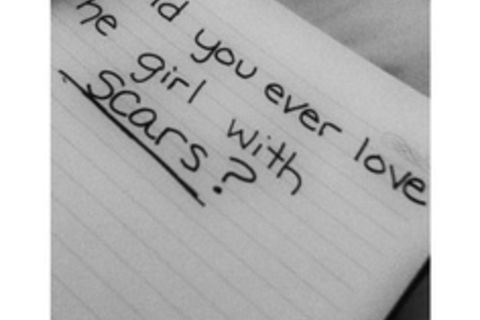 ld you ever love
he girl with
scars?